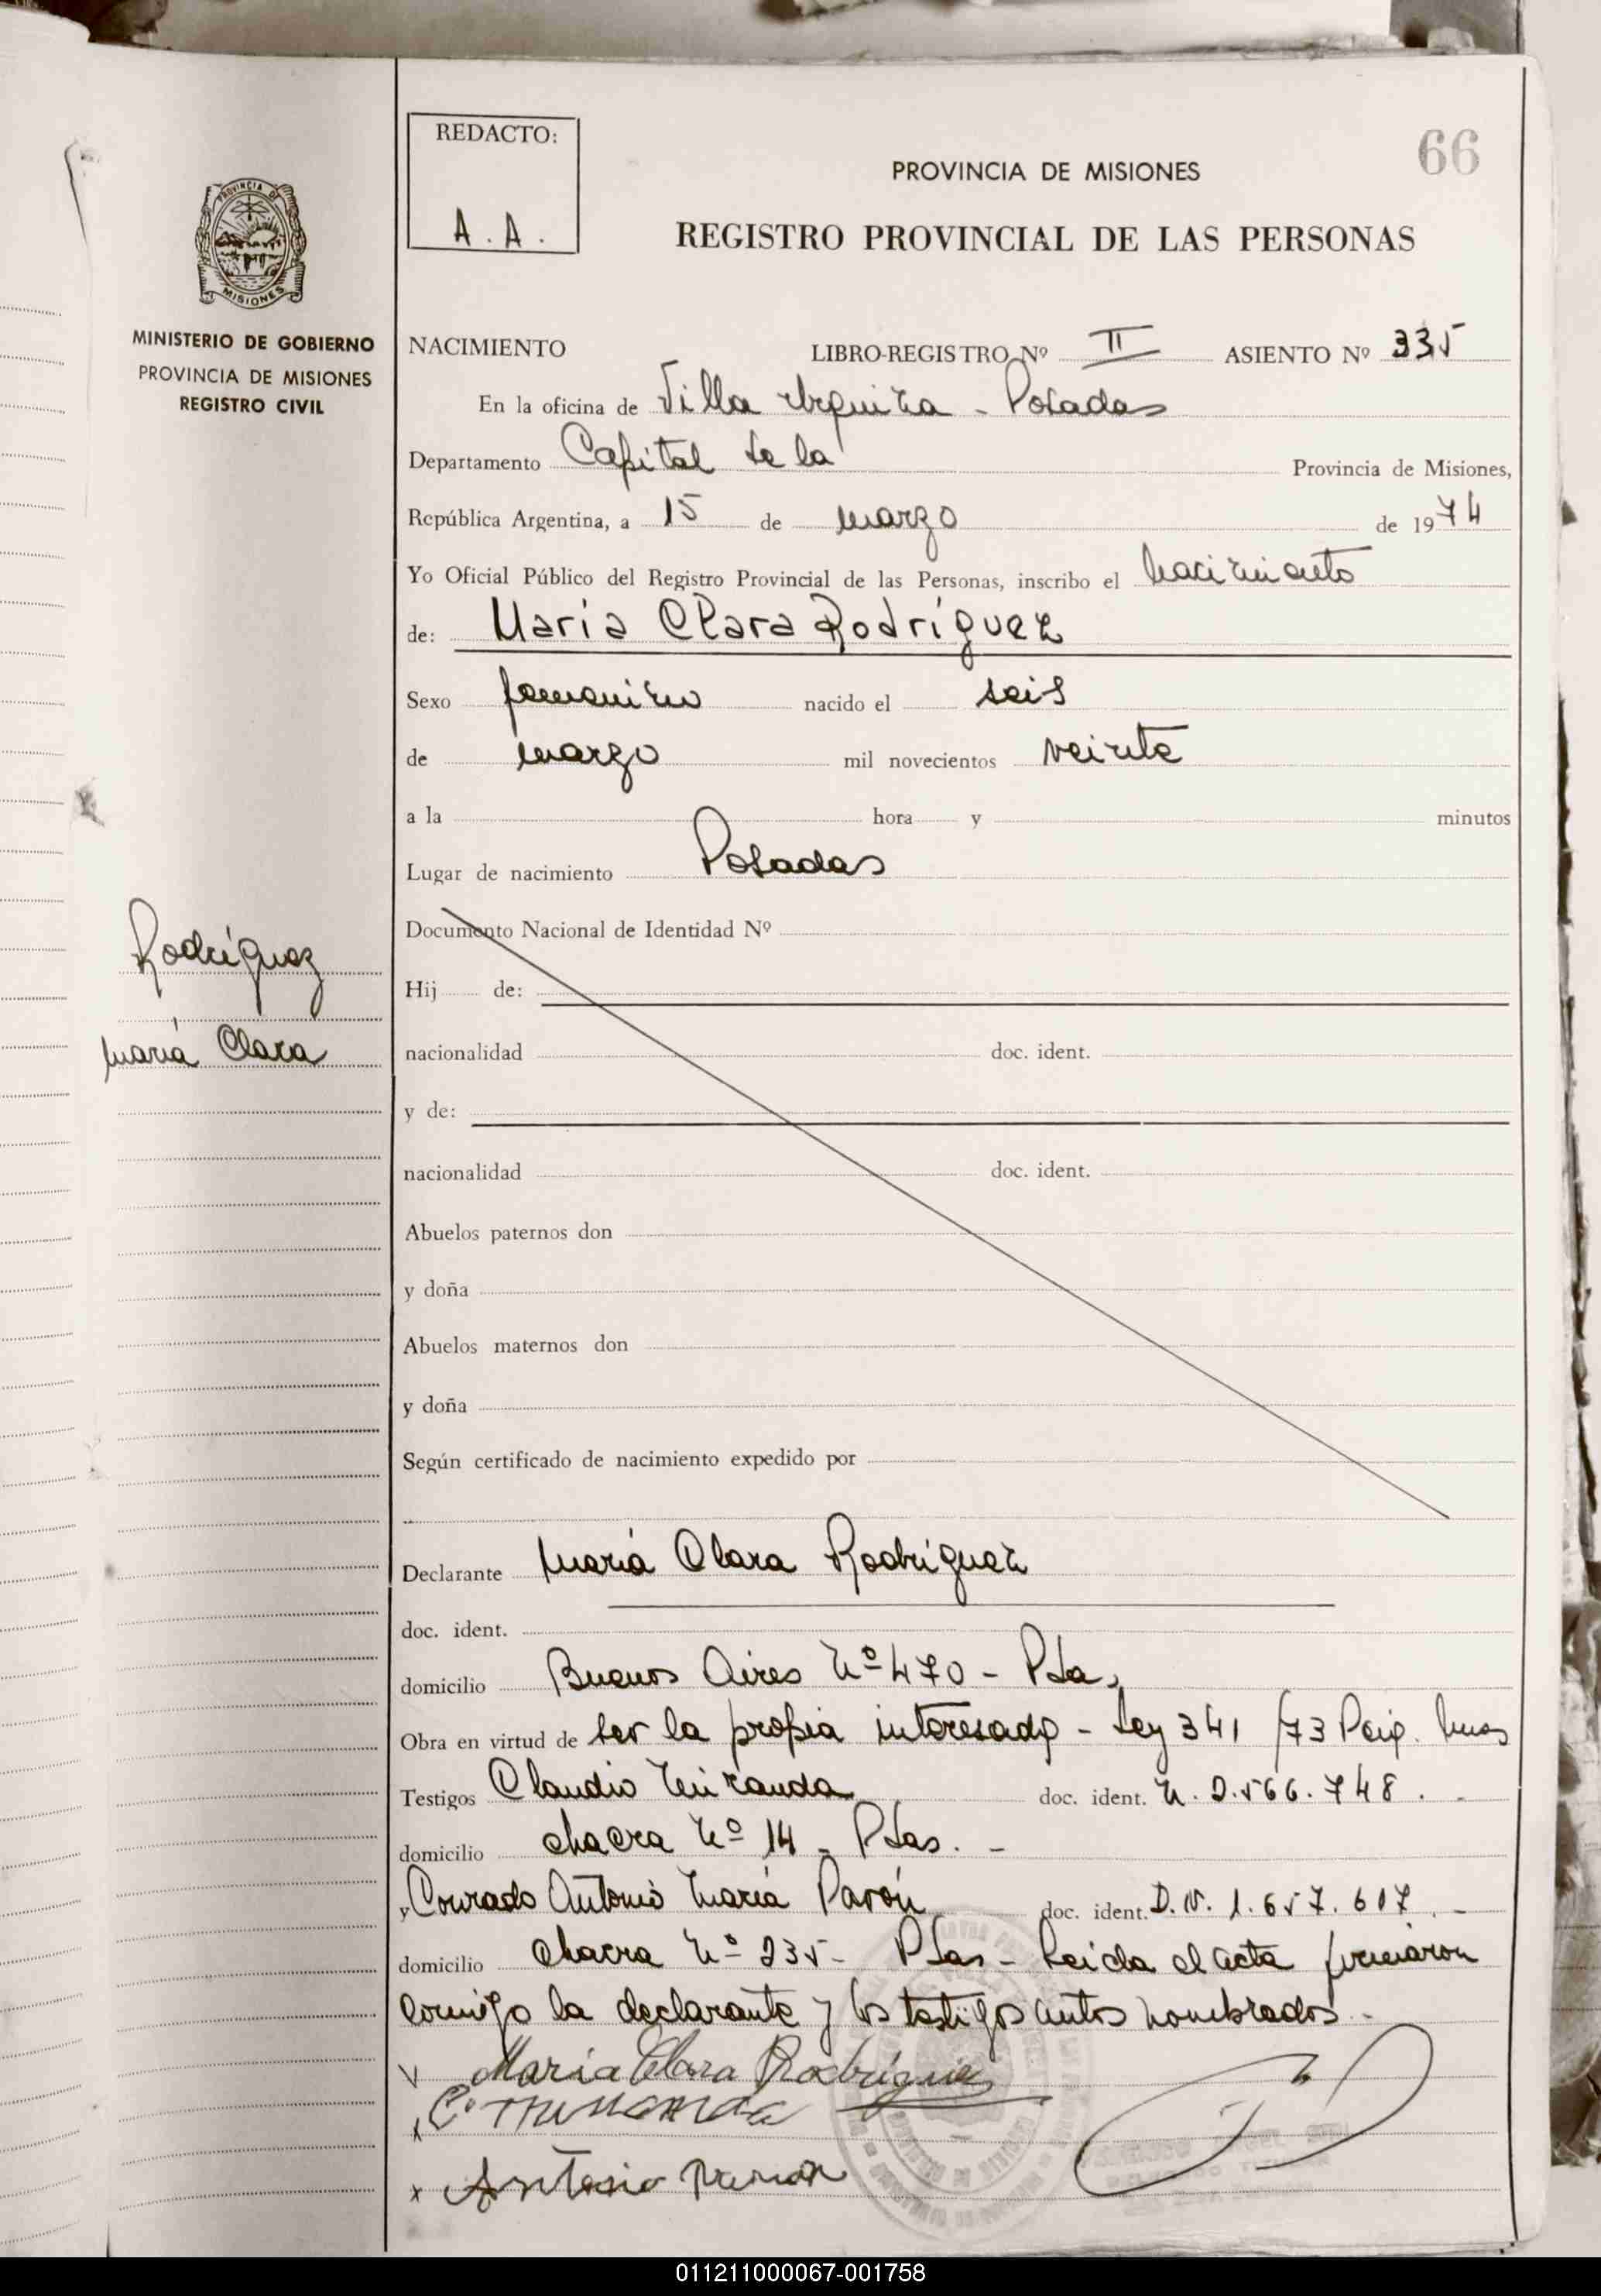 66
REDACTO:
A. A.
PROVINCIA DE MISIONES
REGISTRO PROVINCIAL DE LAS PERSONAS
PROVINCIA DE
MISIONES
MINISTERIO DE GOBIERNO
PROVINCIA DE MISIONES
REGISTRO CIVIL
NACIMIENTO LIBRO-REGISTRO Nº II ASIENTO Nº 335
En la oficina de Villa Urquiza - Posadas
Departamento Capital de la Provincia de Misiones,
República Argentina, a 15 de marzo de 1974
Yo Oficial Público del Registro Provincial de las Personas, inscribo el nacimiento
de: María Clara Rodríguez
Sexo femenino nacido el seis
de marzo mil novecientos veinte
a la hora y minutos
Lugar de nacimiento Posadas
Documento Nacional de Identidad Nº
Rodríguez
María Clara
Hij de:
nacionalidad doc. ident.
y de:
nacionalidad doc. ident.
Abuelos paternos don
y doña
Abuelos maternos don
y doña
Según certificado de nacimiento expedido por
Declarante María Clara Rodríguez
doc. ident.
domicilio Buenos Aires Nº 470 - Pda,
Obra en virtud de ser la propia interesada - Ley 341/73
Testigos Claudio Miranda doc. ident. M. 2.566.748. -
domicilio chacra Nº 14 - Pdas. -
y Conrado Antonio María Parón doc. ident. D.N. 1.657.607. -
domicilio Chacra Nº 235 - Pdas - Leida el acta firmaron
conmigo la declarante y los testigos antes nombrados. -
María Clara Rodríguez
C. Miranda
x Antonio
011211000067-001758